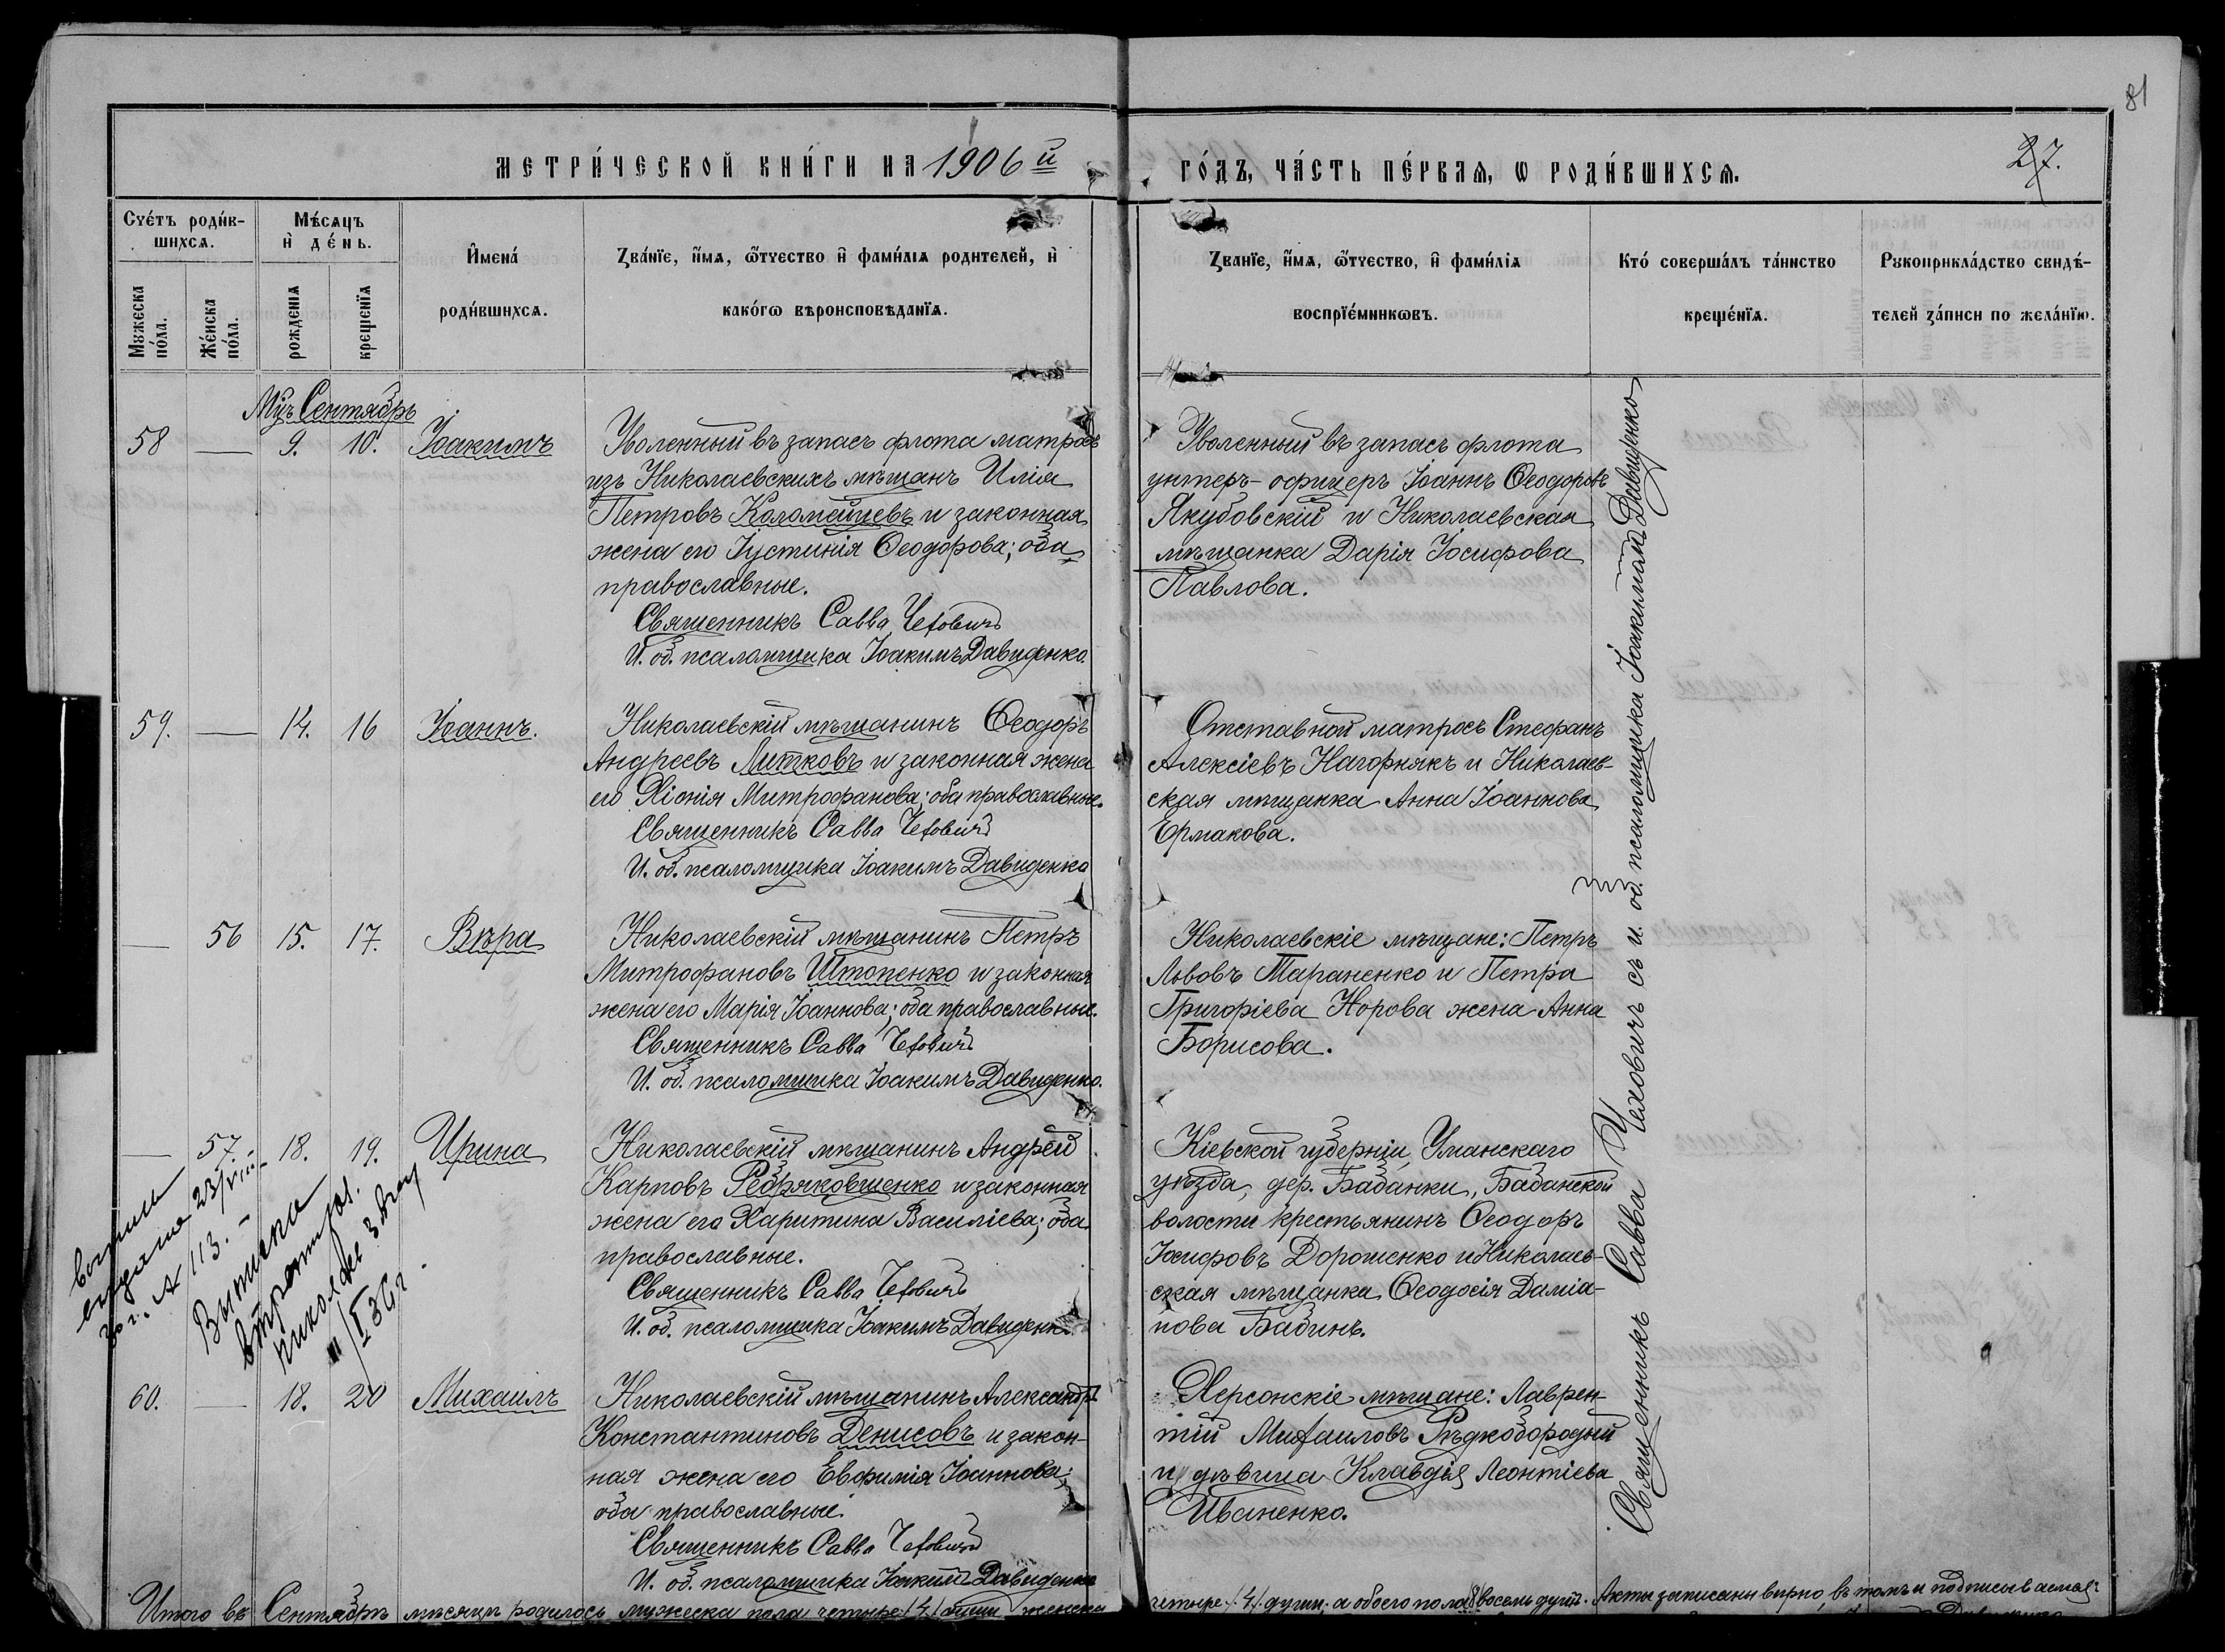 81
МЕТРИ́ЧЕСКОЙ КНИ́ГИ НА 1906й
ГО́ДЪ, ЧА́СТЬ ПЕ́РВАЯ, Ѡ РОДИ́ВШИХСѦ.
27.
Счéтъ роди́в-
шихсѧ.
Мѣ́сѧцъ
и҆ де́нь.
Мꙋжеска
по́ла.
Же́нска
по́ла.
рожденїѧ
крещенїѧ
И҆мена́
роди́вшихсѧ.
Зва́нїе, и҆́мѧ, ѻ҆́тчество и҆ фами́лїѧ родителей, и҆
како́гѡ вѣроисповѣданїѧ.
Званїе, и҆́мѧ, ѻ҆́тчество, и҆ фами́лїѧ
воспрїе́мникѡвъ.
Кто́ соверша́лъ та́инство
креще́нїѧ.
Рꙋкоприкла́дство свидѣ́-
телей за́писи по жела́нїю.
Мцъ Сентябрь
58 — 9. 10. Іоакимъ
Уволенный въ запасъ флота матросъ
изъ Николаевскихъ мѣщанъ Илія
Петровъ Коломейцевъ и законная
жена его Іустинія Ѳеодорова; оба
православные.
Священникъ Савва Чехович
И. об. псаломщика Іоакимъ Давиденко.
Уволенный въ запасъ флота
унтеръ-офицеръ Іоаннъ Ѳеодоровъ
Якубовскій и Николаевская
мѣщанка Дарія Іосифова
Павлова.
59. — 14. 16 Іоаннъ.
Николаевскій мѣщанинъ Ѳеодоръ
Андреевъ Литковъ и законная жена
его Хіонія Митрофанова; оба православные.
Священникъ Савва Чехович
И. об. псаломщика Іоакимъ Давиденко
Отставной матросъ Стефанъ
Алексіевъ Нагорнякъ и Николаев-
ская мѣщанка Анна Іоаннова
Ермакова.
— 56 15. 17. Вѣра
Николаевскій мѣщанинъ Петръ
Митрофановъ Штопенко и законная
жена его Марія Іоаннова; оба православные.
Священникъ Савва Чехович
И. об. псаломщика Іоакимъ Давиденко.
Николаевскіе мѣщане: Петръ
Львовъ Тараненко и Петра
Григоріева Норова жена Анна
Борисова.
— 57. 18. 19. Ирина
Николаевскій мѣщанинъ Андрей
Карповъ Ребряковшенко и законная
жена его Харитина Василіева; оба
православные.
Священникъ Савва Чехович
И. об. псаломщика Іоакимъ Давиденко.
Кіевской губерніи, Уманскаго
уѣзда, дер. Бабанки, Бабанской
волости крестьянинъ Ѳеодоръ
Іосифовъ Дорошенко и Николаев-
ская мѣщанка Ѳеодосія Даміа-
нова Бабинъ.
выдана 23/VIII
30 г. № 113.
Выписка
36 г.
60. — 18. 20 Михаилъ
Николаевскій мѣщанинъ Александръ
Константиновъ Денисовъ и закон-
ная жена его Евфимія Іоаннова;
оба православные.
Священникъ Савва Чехович
И. об. псаломщика Іоакимъ Давиденко
Херсонскіе мѣщане: Лаврен-
тій Михаиловъ Рѣдкобородый
и дѣвица Клавдія Леонтіева
Иваненко.
Священникъ Савва Чеховичъ съ и. об. псаломщика Іоакимомъ Давиденко
Итого въ Сентябрѣ мѣсяцѣ родилось мужеска пола четыре /4/ женска
четыре /4/ души, а обоего пола восемь душъ. Акты записаны вѣрно, въ томъ и подписываемся: